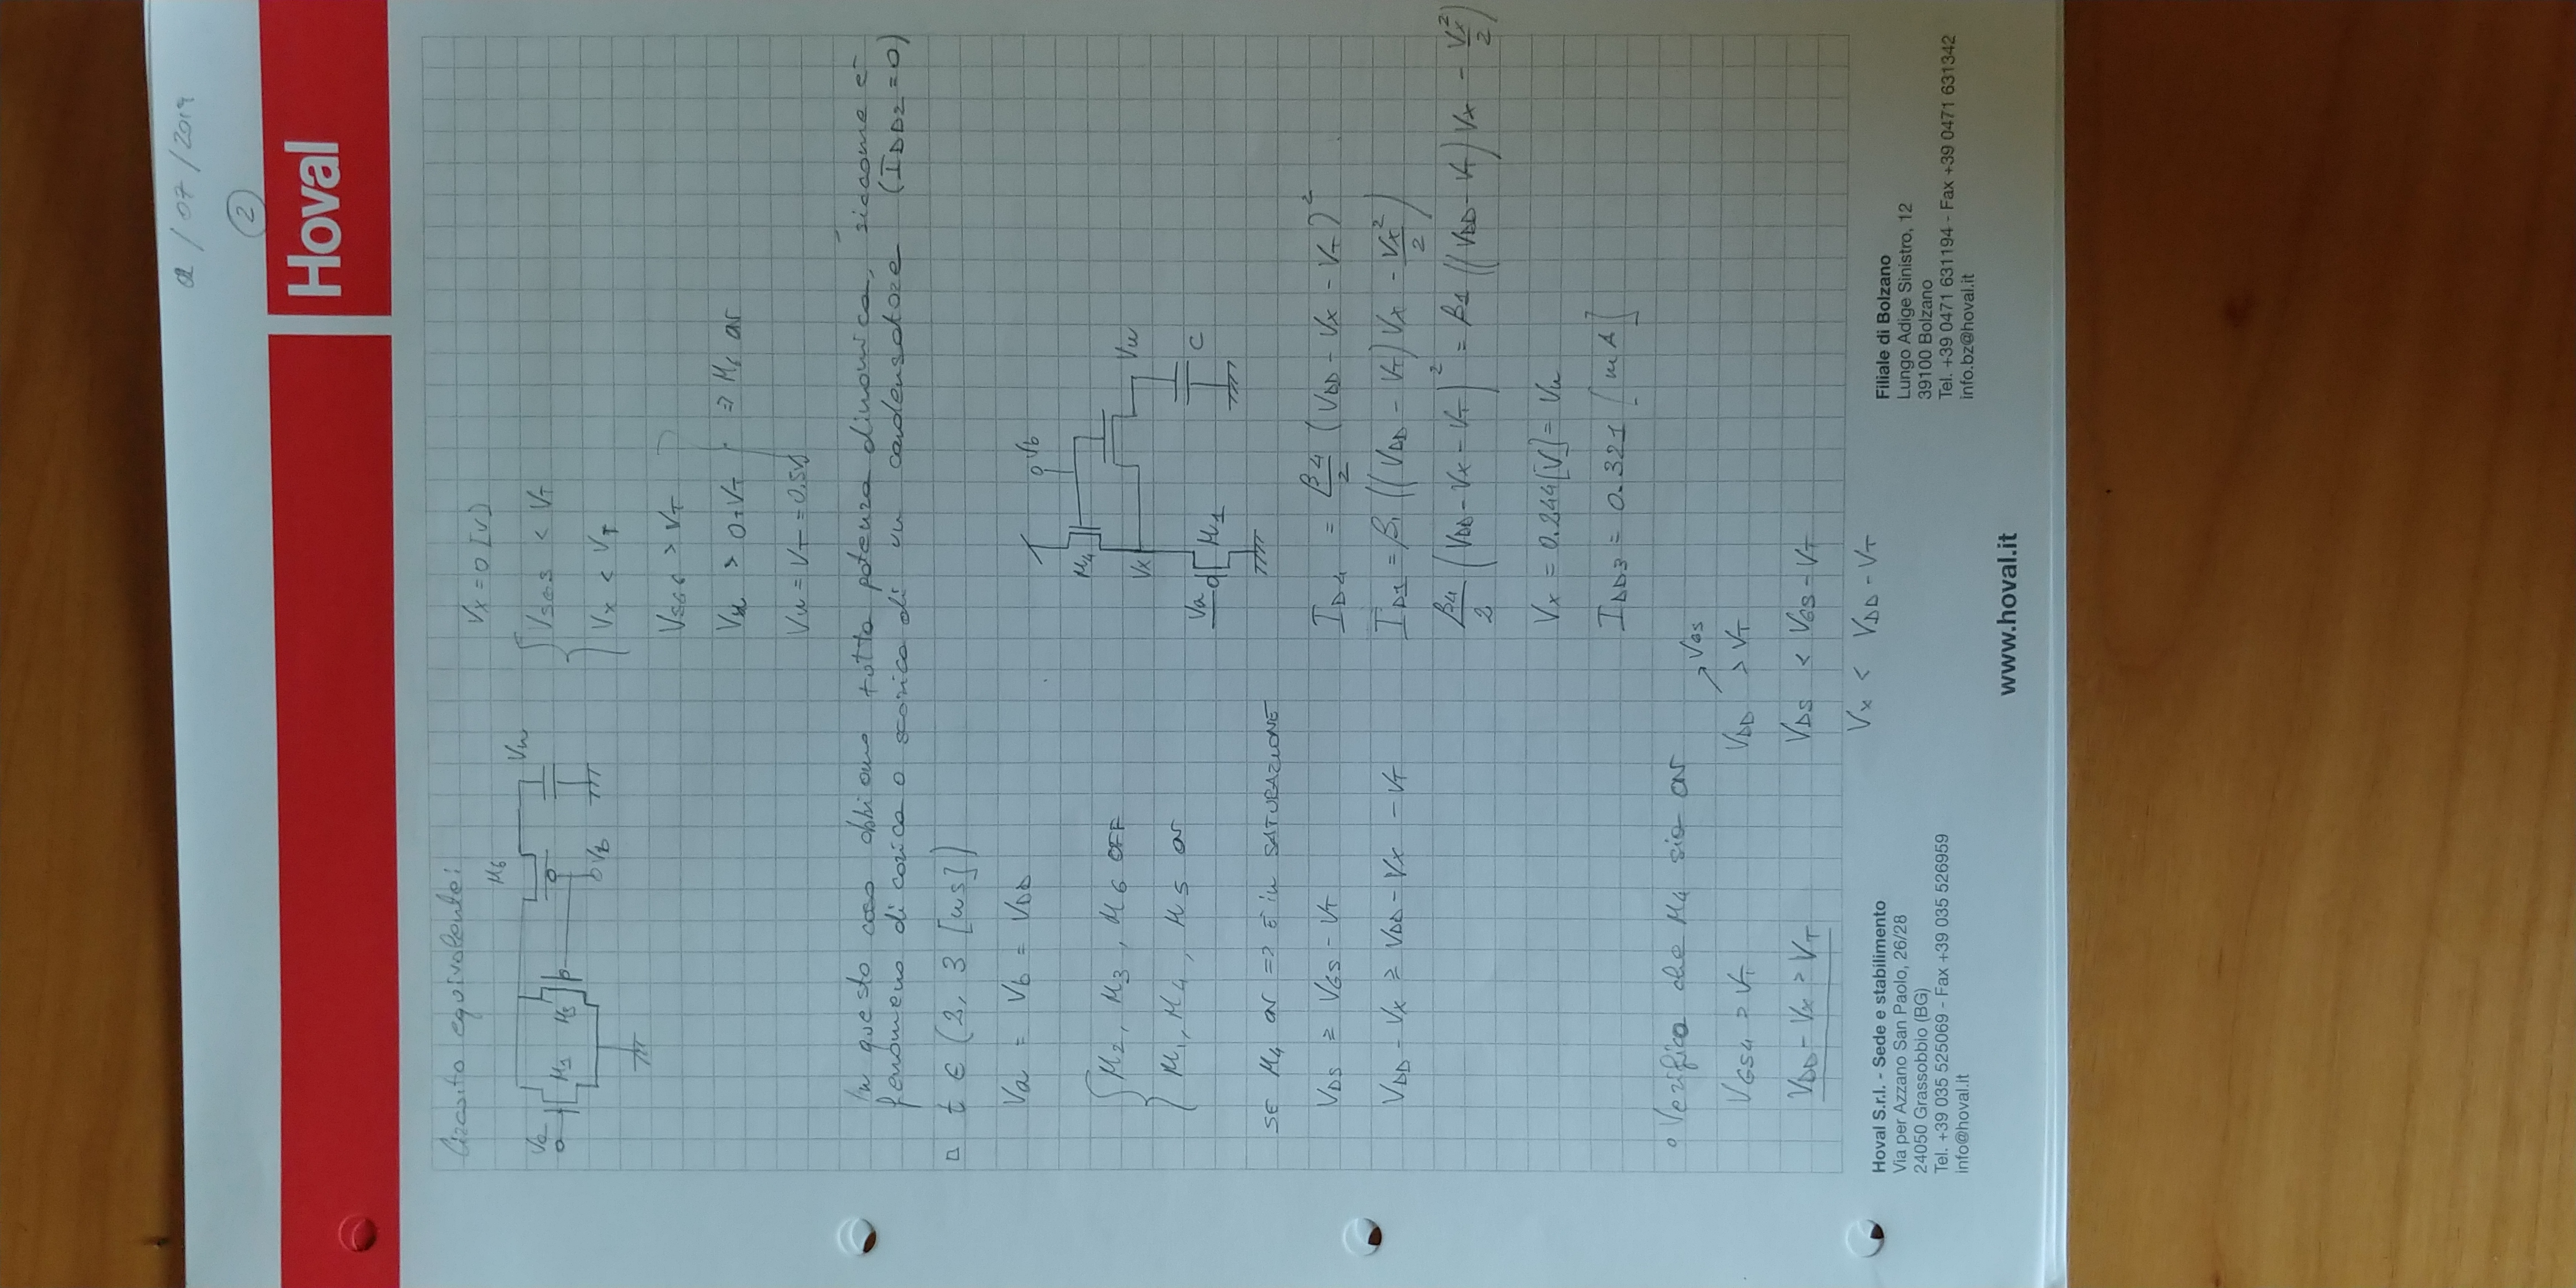 02 / 07 / 2019
2
Hoval
Circuito equivalente:
M6
Va
M1
M3
Vu
Vb
Vx = 0 [V]
VSG3 < VT
Vx < VT
VSG6 > VT
Vu > 0+VT
⇒ M6 on
Vu = VT = 0.5V
In questo caso abbiamo tutta potenza dinamica, siccome è
fenomeno di carica o scarica di un condensatore (IDD2 = 0)
□ t ∈ (2, 3 [ms])
Va = Vb = VDD
M2, M3, M6 OFF
M1, M4, M5 on
Vb
M4
Vx
Vu
Va
M1
C
SE M4 on ⇒ È in SATURAZIONE
VDS ≥ VGS - VT
VDD - Vx ≥ VDD - Vx - VT
ID4 = β4/2 (VDD - Vx - VT)²
ID1 = β1 ((VDD - VT) Vx - Vx²/2)
β4/2 (VDD - Vx - VT)² = β1 ((VDD - VT) Vx - Vx²/2)
Vx = 0.244 [V] = Vu
IDD3 = 0.321 [mA]
° Verifica che M4 sia on
VGS4 > VT
VDD - Vx > VT
VGS
VDD > VT
VDS < VGS - VT
Vx < VDD - VT
Hoval S.r.l. - Sede e stabilimento
Via per Azzano San Paolo, 26/28
24050 Grassobbio (BG)
Tel. +39 035 525069 - Fax +39 035 526959
info@hoval.it
Filiale di Bolzano
Lungo Adige Sinistro, 12
39100 Bolzano
Tel. +39 0471 631194 - Fax +39 0471 631342
info.bz@hoval.it
www.hoval.it